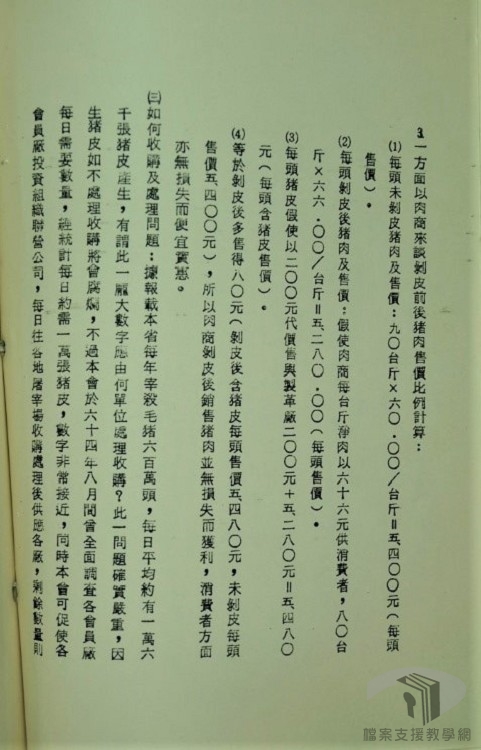 3.一方面以肉商來談剝皮前後豬肉售價比例計算：
(1)每頭未剝皮豬肉及售價：九〇台斤×六〇．〇〇／台斤＝五、四〇〇元（每頭
售價）。
(2)每頭剝皮後豬肉及售價：假使肉商每台斤淨肉以六十六元供消費者，八〇台
斤×六六．〇〇／台斤＝五、二八〇．〇〇（每頭售價）。
(3)每頭豬皮假使以二〇〇元代價售與製革廠二〇〇元＋五、二八〇元＝五、四八〇
元（每頭含豬皮售價）。
(4)等於剝皮後多售得八〇元（剝皮後含豬皮每頭售價五、四八〇元，未剝皮每頭
售價五、四〇〇元），所以肉商剝皮後銷售豬肉並無損失而獲利，消費者方面
亦無損失而便宜實惠。
㈢如何收購及處理問題：據報載本省每年宰殺毛豬六百萬頭，每日平均約有一萬六
千張豬皮產生，有請此一龐大數字應由何單位處理收購？此一問題確實嚴重，因
生豬皮如不處理收購將會腐爛，不過本會於六十四年八月間曾全面調查各會員廠
每日需要數量，經統計每日約需一萬張豬皮，數字非常接近，同時本會可促使各
會員廠投資組織聯營公司，每日往各地屠宰場收購處理後供應各廠，剩餘數量則
檔案支援教學網